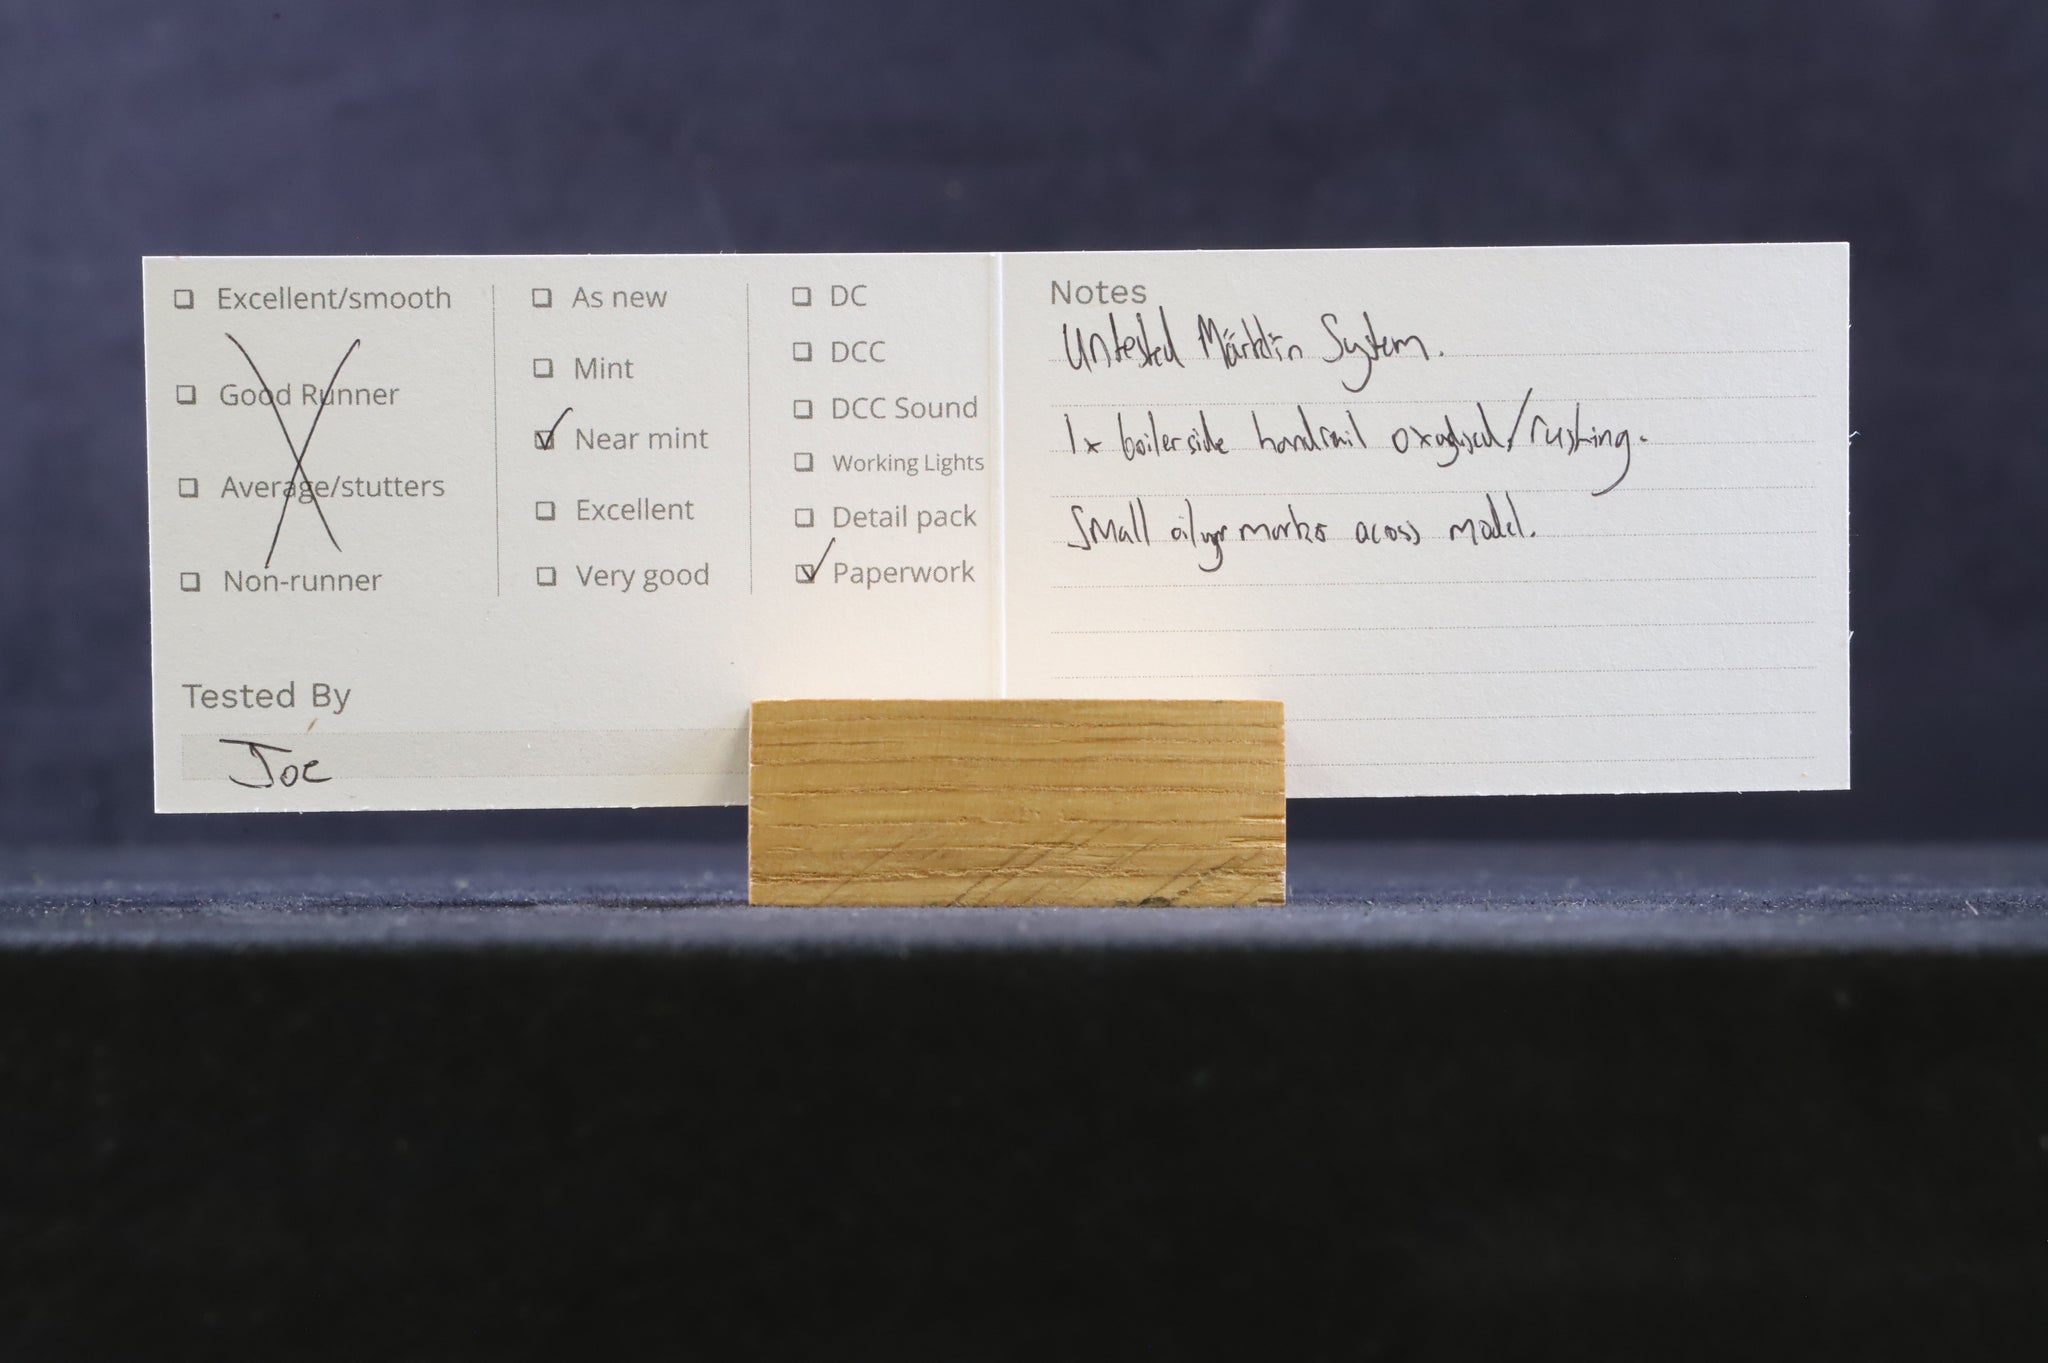 Excellent/smooth
Good Runner
Average/stutters
Non-runner
As new
Mint
Near mint
Excellent
Very good
DC
DCC
DCC Sound
Working Lights
Detail pack
Paperwork
Tested By
Joe
Notes
Untested Märklin System.
1x boilerside handrail oxydised/rusting.
Small marks across model.